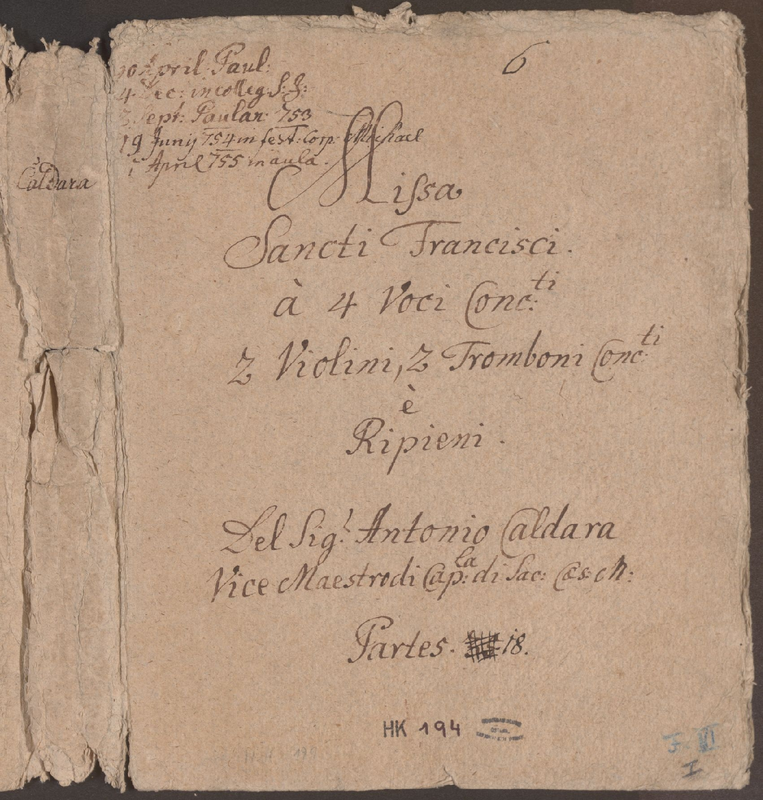 Caldara
6
April: Paul:
4 Dec: in colleg: S: J:
Sept: Paular: 753
19 Junij 754 in fest: Corp: Michael
April 755 in aula.
Missa
Sancti Francisci.
à 4 Voci Conc:ti
2 Violini, 2 Tromboni Conc:ti
è
Ripieni.
Del Sig:r Antonio Caldara
Vice Maestro di Cap:la di Sac: Cæs: M:
Partes. 18.
HK 194
I